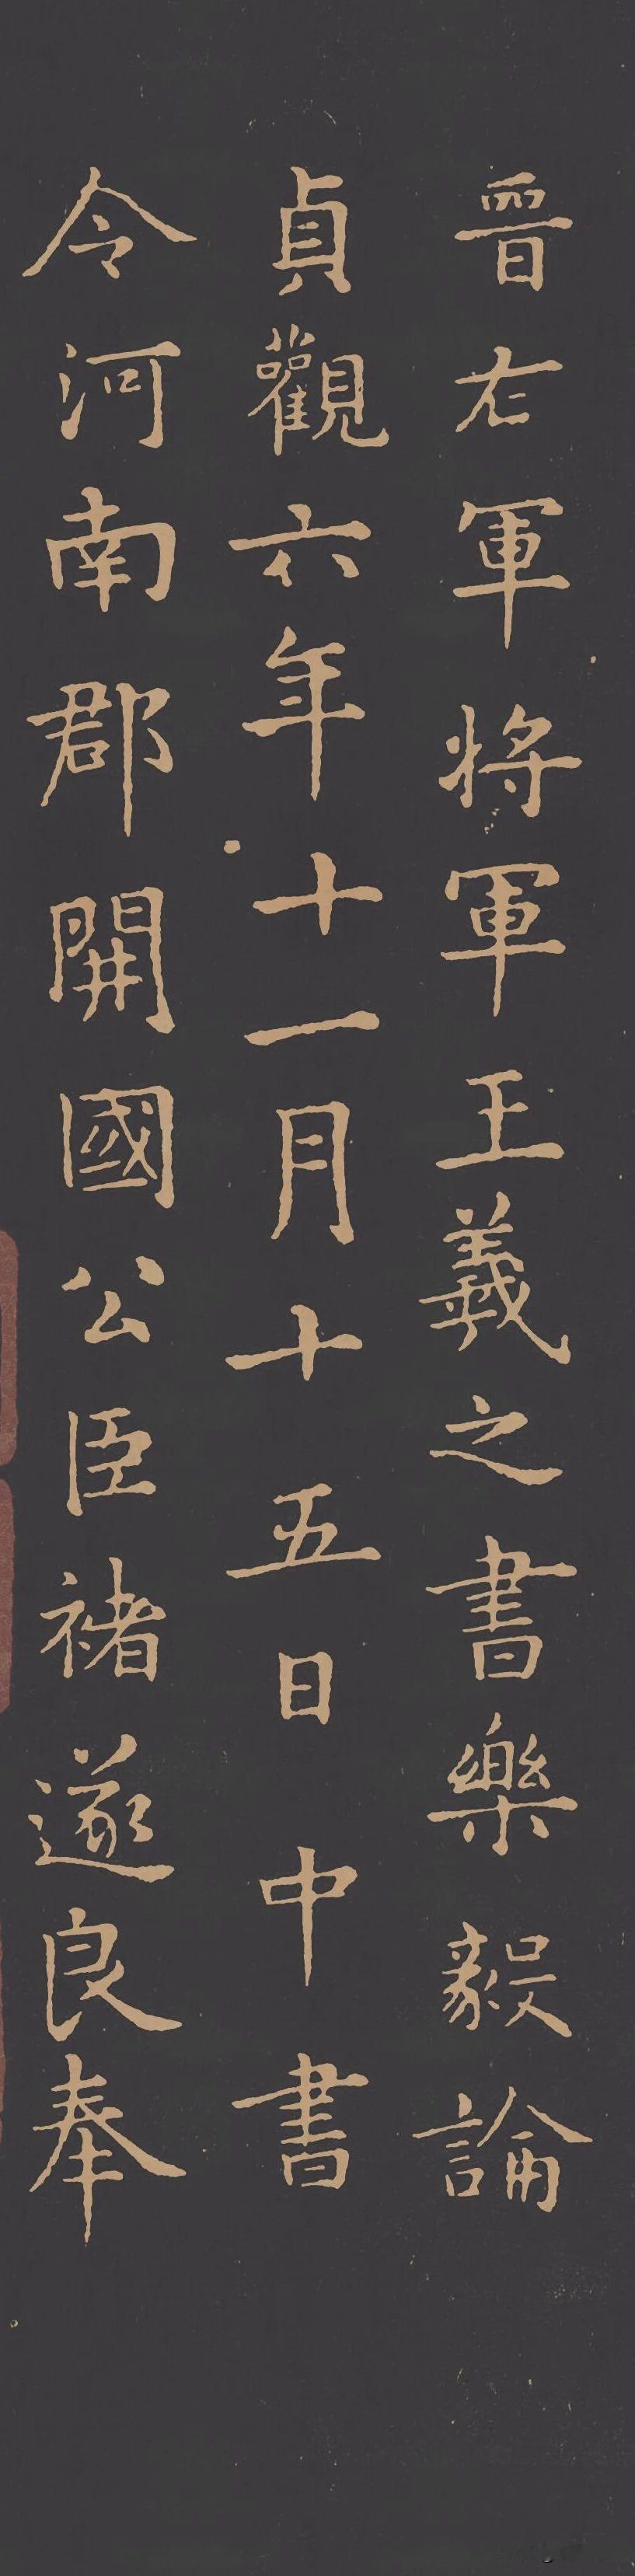 晉右軍将軍王羲之書樂毅論
貞觀六年十一月十五日中書
令河南郡開國公臣褚遂良奉